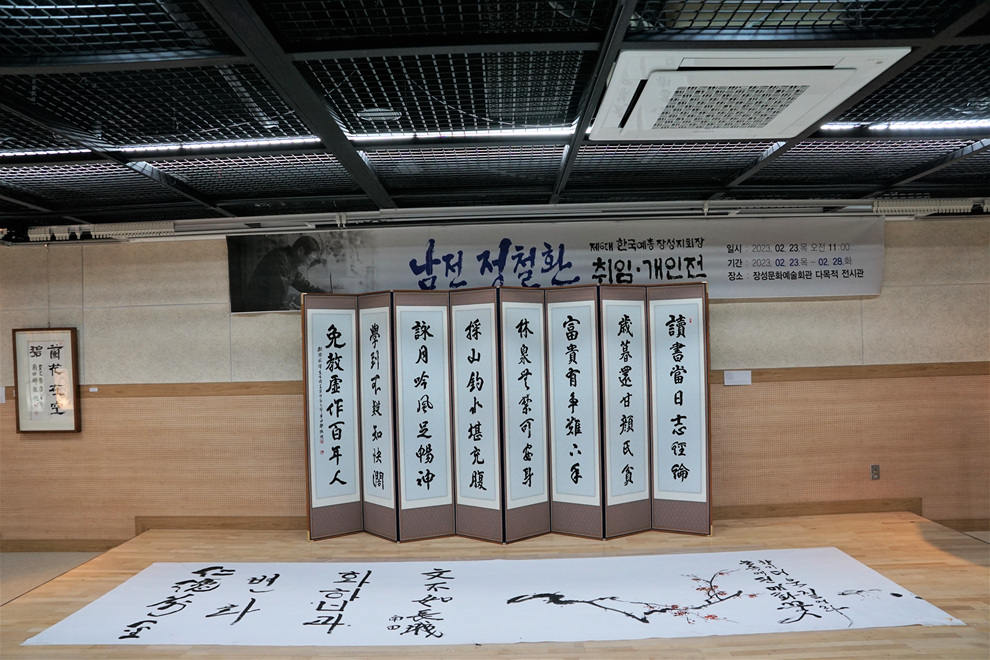 남전 정철환
제6대 한국예총장성지회장
취임·개인전
일시 : 2023. 02. 23.목 오전 11:00
기간 : 2023. 02. 23.목 ~ 02. 28.화
장소 : 장성문화예술회관 다목적 전시관
讀書當日志經綸
歲暮還甘顔氏貧
富貴有爭難下手
林泉無禁可安身
採山釣水堪充腹
詠月吟風足暢神
學到不疑知快闊
免教虛作百年人
文不如長城
南田
화합과
변화